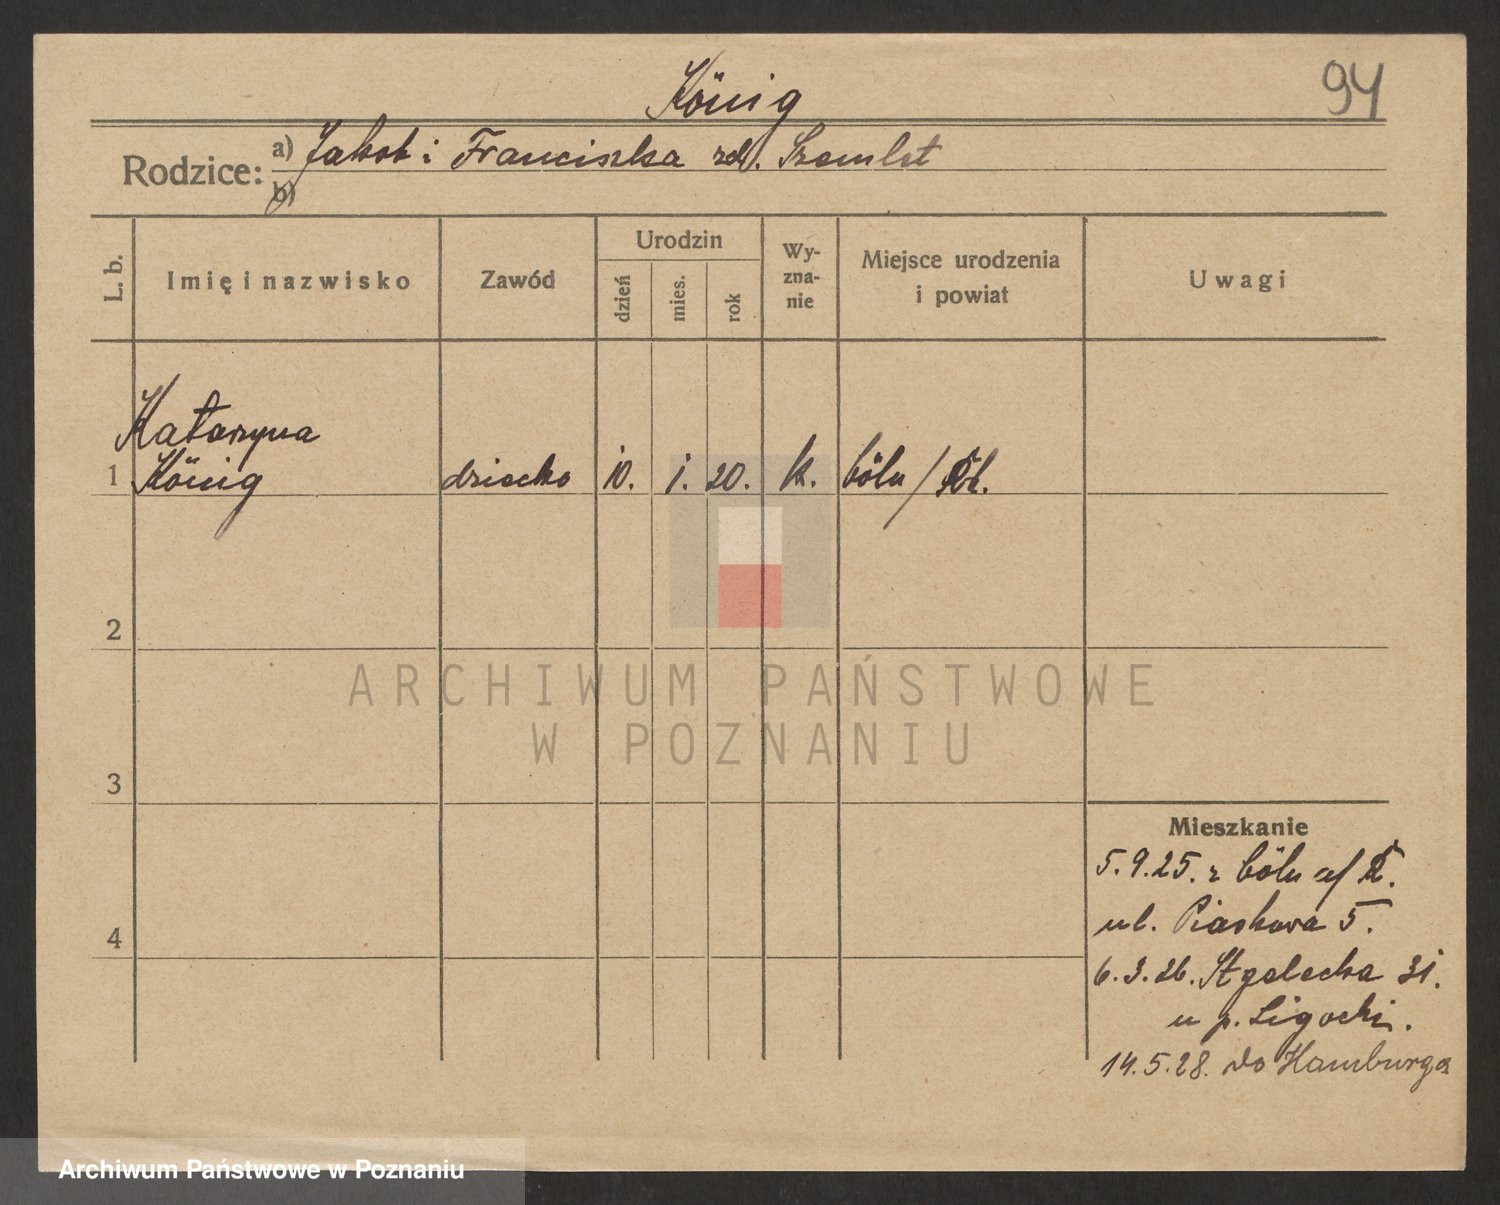 König
94
Rodzice: a) Jakob i Franciszka zd. Szemlet
b)
L. b.
Imię i nazwisko
Zawód
Urodzin
dzień
mies.
rok
Wy-
zna-
nie
Miejsce urodzenia
i powiat
Uwagi
Kataryna
1 König dziecko 10. 1. 20. k. Cöln / Rh.
2
3
4
Mieszkanie
5.9.25. z Cöln a/ R.
ul. Piaskowa 5.
6.3.26. Strzelecka 31.
u p. Ligocki.
14.5.28. do Hamburga
ARCHIWUM PAŃSTWOWE
W POZNANIU
Archiwum Państwowe w Poznaniu